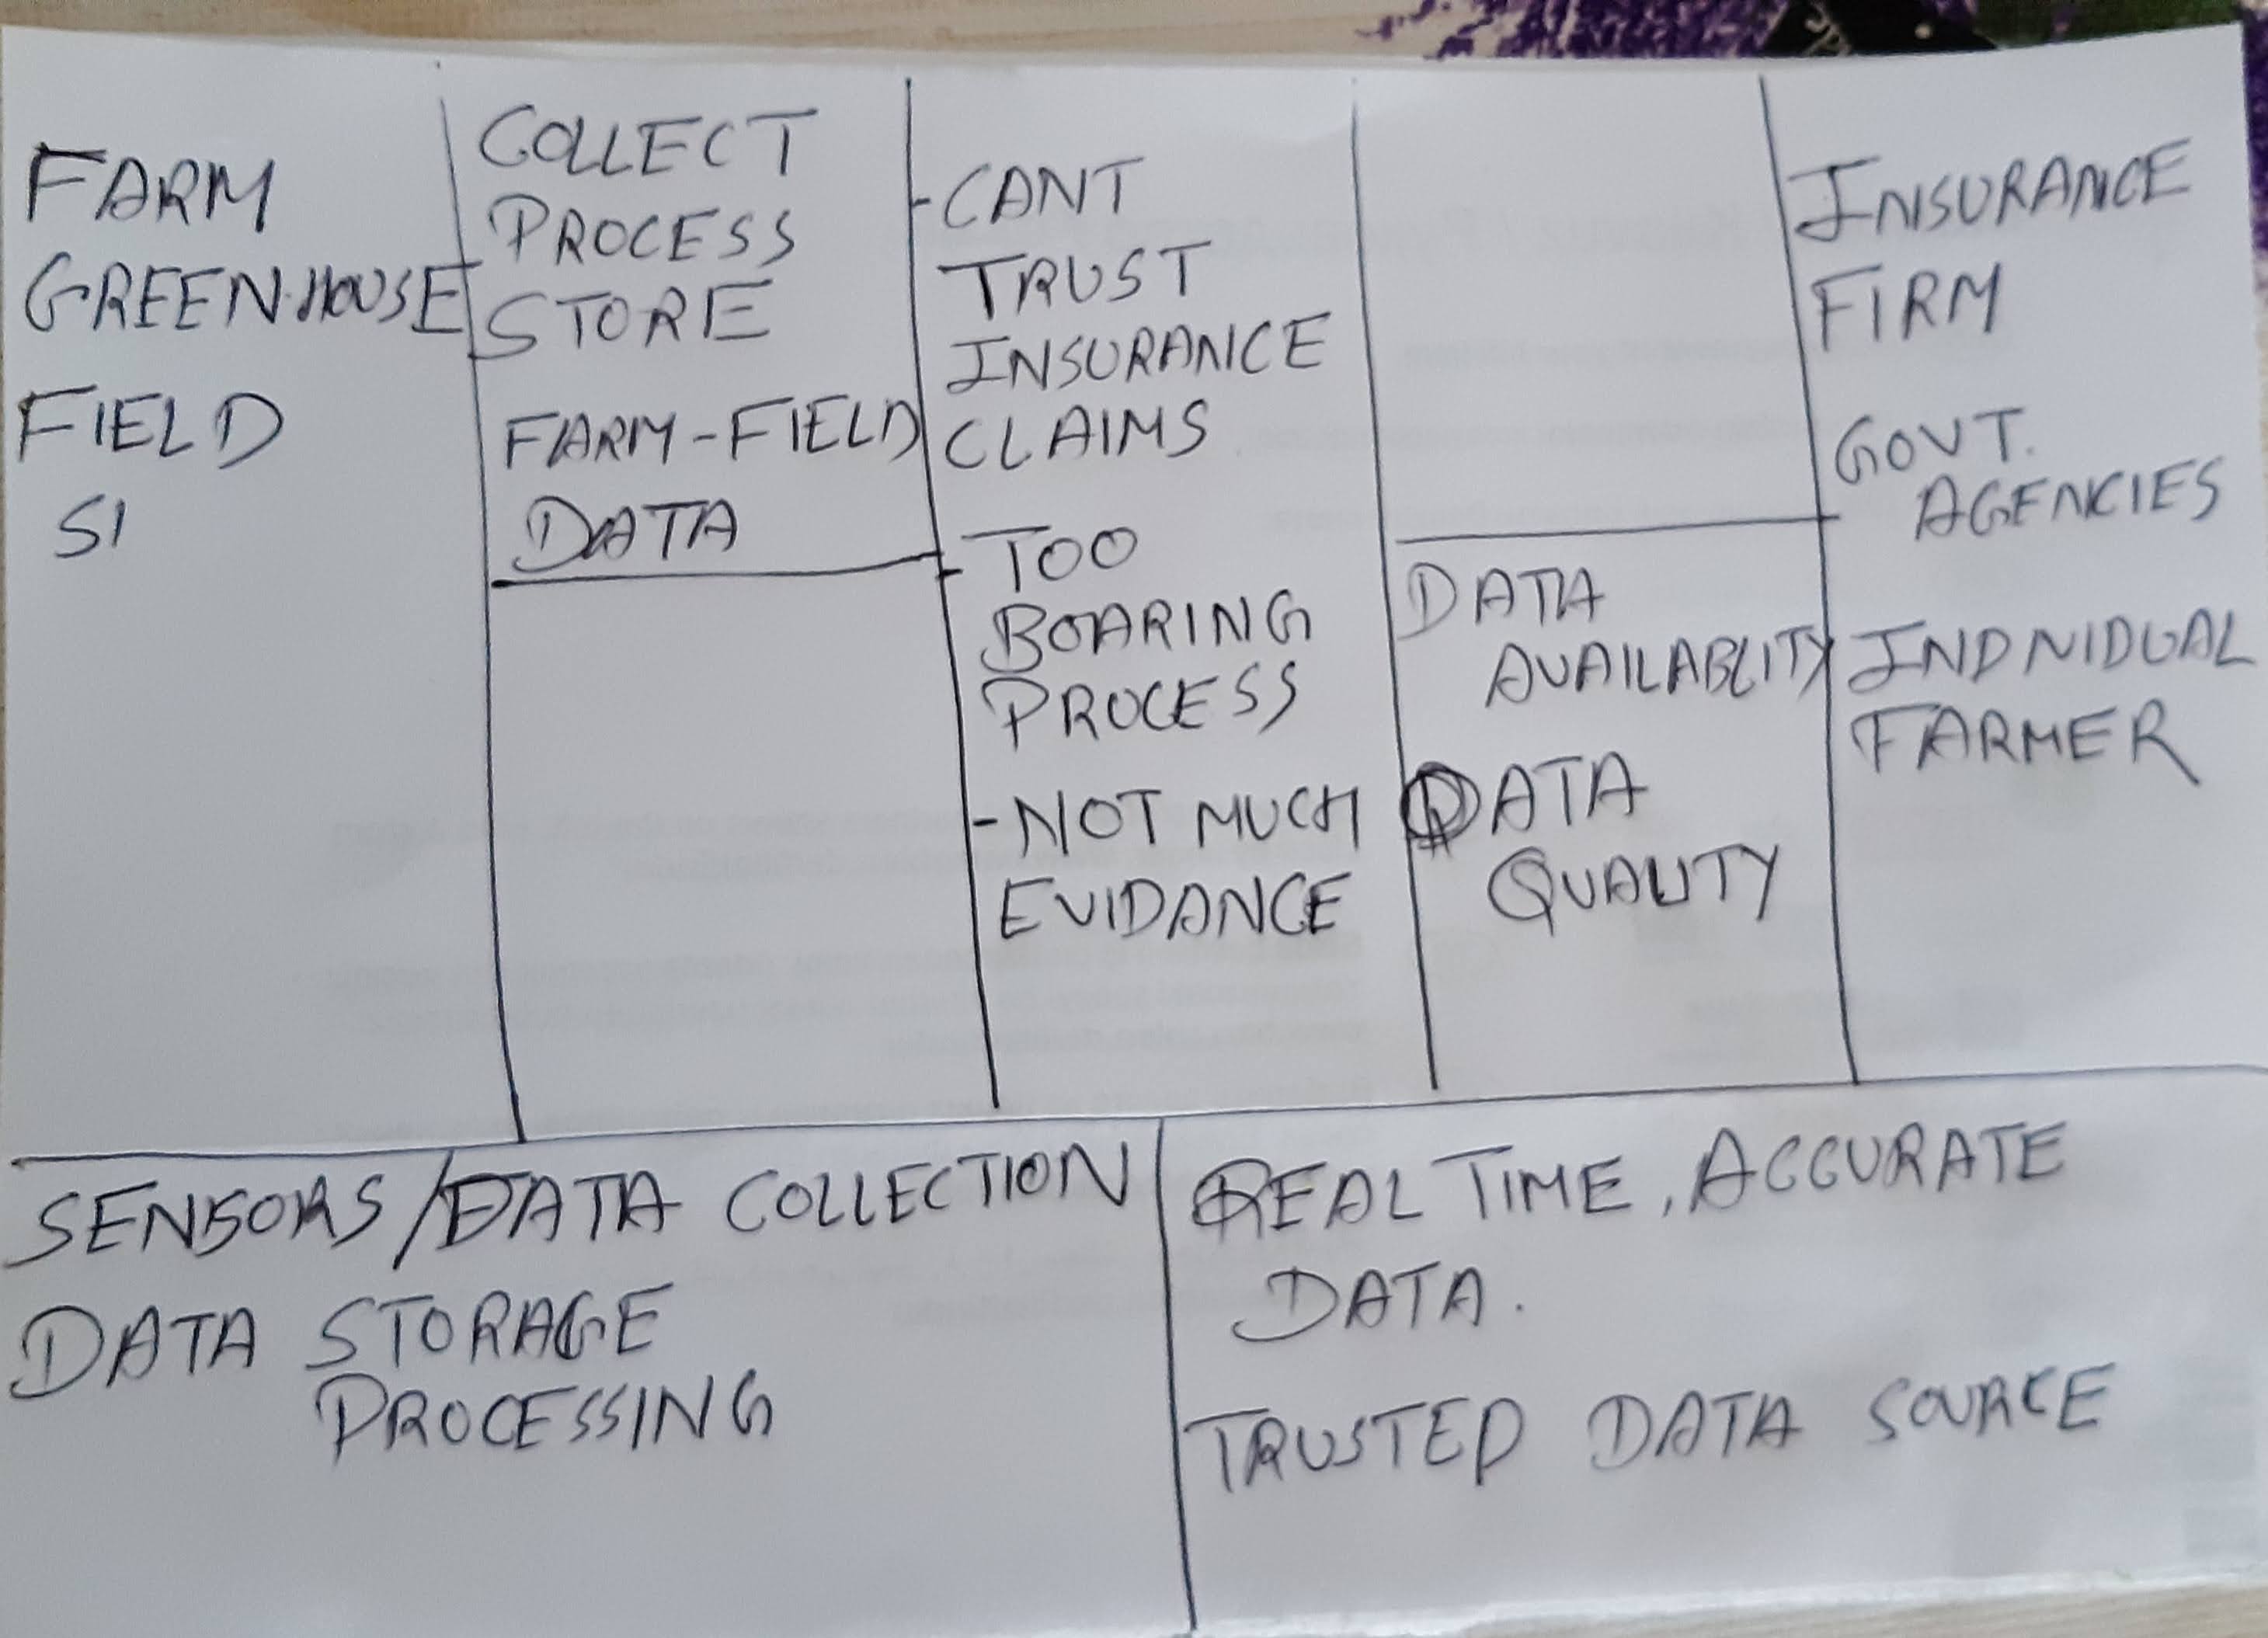 FARM
GREENHOUSE
FIELD
SI
COLLECT
PROCESS
STORE
FARM-FIELD
DATA
-CANT
TRUST
INSURANCE
CLAIMS
- TOO
BOARING
PROCESS
-NOT MUCH
EVIDANCE
DATA
AVAILABLITY
DATA
QUALITY
INSURANCE
FIRM
GOVT.
AGENCIES
INDIVIDUAL
FARMER
SENSORS/DATA COLLECTION
DATA STORAGE
PROCESSING
REAL TIME, ACCURATE
DATA.
TRUSTED DATA SOURCE